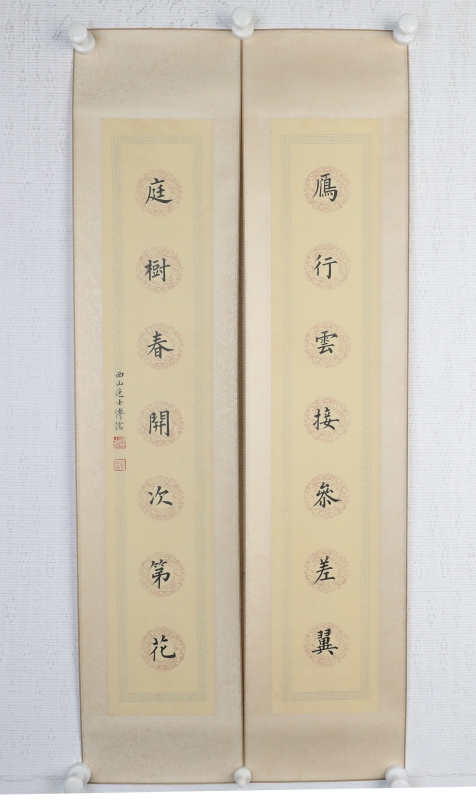 鴈行雲接參差翼
庭樹春開次第花
西山逸士溥儒